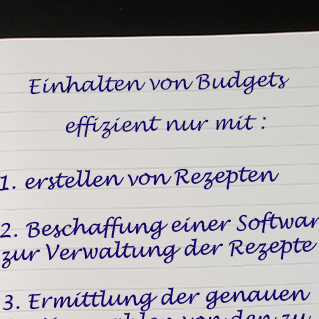 Einhalten von Budgets
effizient nur mit :
1. erstellen von Rezepten
2. Beschaffung einer Softwar
zur Verwaltung der Rezepte
3. Ermittlung der genauen
von den zu